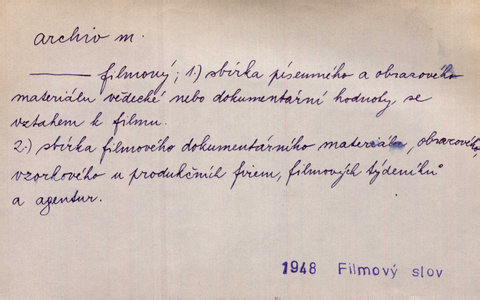 archiv m.
——— filmový; 1.) sbírka písemného a obrazového
materiálu vědecké nebo dokumentární hodnoty, se
vztahem k filmu.
2.) sbírka filmového dokumentárního materiálu, obrazového,
vzorkového u produkčních firem, filmových týdeníků
a agentur.
1948 Filmový slov